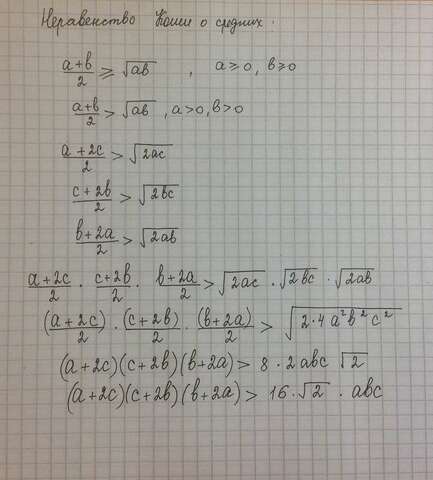 Неравенство Коши о средних.
(a+b)/2 ⩾ √(ab) , a⩾0, b⩾0
(a+b)/2 > √(ab) , a>0, b>0
(a+2c)/2 > √(2ac)
(c+2b)/2 > √(2bc)
(b+2a)/2 > √(2ab)
(a+2c)/2 · (c+2b)/2 · (b+2a)/2 > √(2ac) · √(2bc) · √(2ab)
(a+2c)/2 · (c+2b)/2 · (b+2a)/2 > √(2·4a²b²c²)
(a+2c)(c+2b)(b+2a) > 8·2abc √2
(a+2c)(c+2b)(b+2a) > 16·√2 · abc